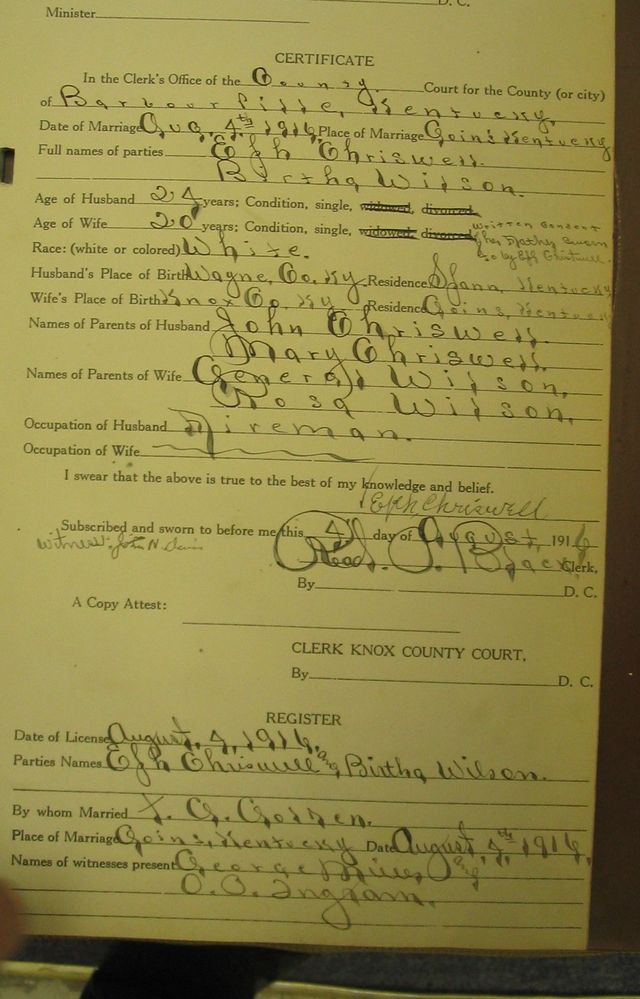 D. C.
Minister
CERTIFICATE
In the Clerk's Office of the County Court for the County (or city)
of Barbourville, Kentucky,
Date of Marriage Aug. 4th 1916 Place of Marriage Goins Kentucky
Full names of parties Eph Chriswell.
Birtha Wilson.
Age of Husband 24 years; Condition, single, widowed, divorced
Age of Wife 20 years; Condition, single, widowed, divorced written consent
of her Mother sworn
Race: (white or colored) White. to by Eph Chriswell.
Husband's Place of Birth Wayne, Co. Ky. Residence Spann, Kentucky
Wife's Place of Birth Knox Co. Ky Residence Goins, Kentucky
Names of Parents of Husband John Chriswell.
Mary Chriswell.
Names of Parents of Wife General Wilson,
Rosa Wilson,
Occupation of Husband Fireman.
Occupation of Wife
I swear that the above is true to the best of my knowledge and belief.
Eph Chriswell
Subscribed and sworn to before me this 4 day of August, 1916
Witness: John H. Davis
Read O. Black Clerk.
By D. C.
A Copy Attest:
CLERK KNOX COUNTY COURT.
By D. C.
REGISTER
Date of License August, 4, 1916,
Parties Names Eph Chriswell and Birtha Wilson.
By whom Married
Place of Marriage Goins, Kentucky Date August, 4th, 1916,
Names of witnesses present George and
O. O. Ingram.